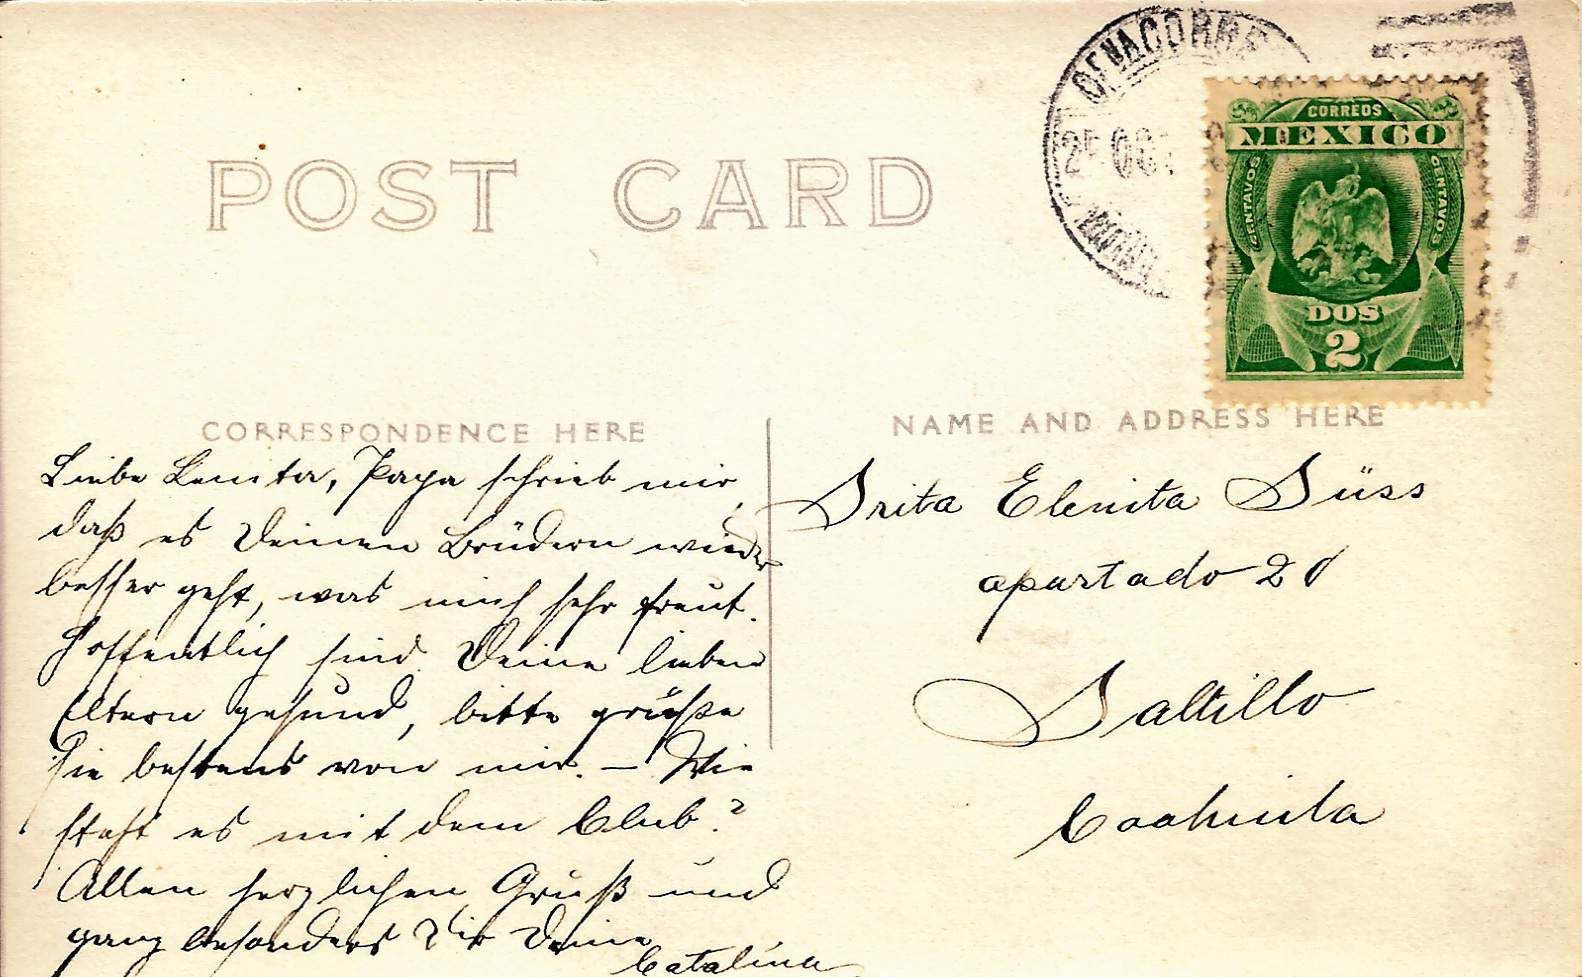 POST CARD
CORREOS
MEXICO
CENTAVOS
CENTAVOS
DOS
2
CORRESPONDENCE HERE
Liebe Lenita, Papa schrieb mir,
daß es Deinen Brüdern wieder
besser geht, was mich sehr freut.
Hoffentlich sind Deine lieben
Eltern gesund, bitte grüße
sie bestens von mir. – Wie
steht es mit dem Club?
Allen herzlichen Gruß und
ganz besonders Dir Deine
Catalina
NAME AND ADDRESS HERE
Srita Elenita Süss
apartado 20
Saltillo
Coahuila